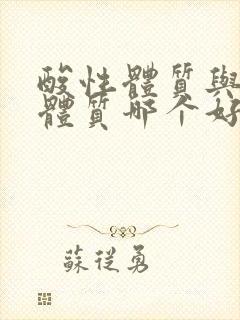 酸性體質與
體質哪个好
蘇從勇